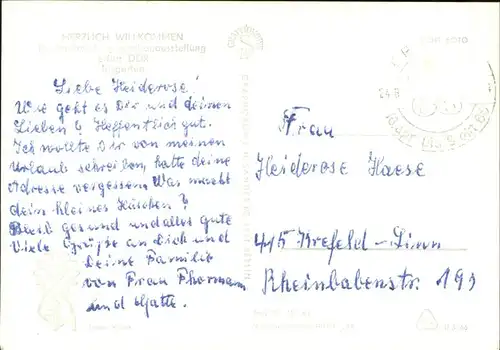 HERZLICH WILLKOMMEN
der DDR
Liebe Heiderose!
Wie geht es Dir und deinen
Lieben? Hoffentlich gut.
Ich wollte Dir von meinen
Urlaub schreiben, hatte deine
Adresse vergessen. Was macht
dein kleines Häschen?
Bleib gesund und alles gute
Viele Grüße an Dich und
Deine Familie
von Frau Thormann
und Gatte.
Frau
Heiderose Haese
415 Krefeld-Linn
Rheinbabenstr. 193